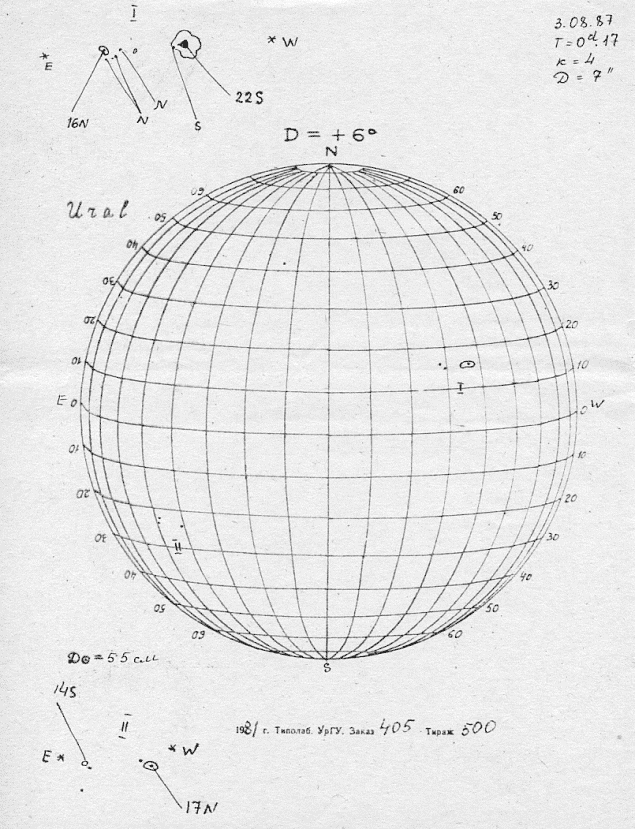 I
3.08.87
T = 0ᵈ.17
K = 4
D = 7"
* E
* W
16N
N
N
S
22S
D = + 6°
N
Ural
60
60
50
50
40
40
30
30
20
20
10
10
I
E 0
0 W
10
10
20
20
30
30
II
40
40
50
50
60
60
S
D⊙ = 55 см
14S
II
E *
* W
17N
1981 г. Типолаб. УрГУ. Заказ 405 Тираж 500